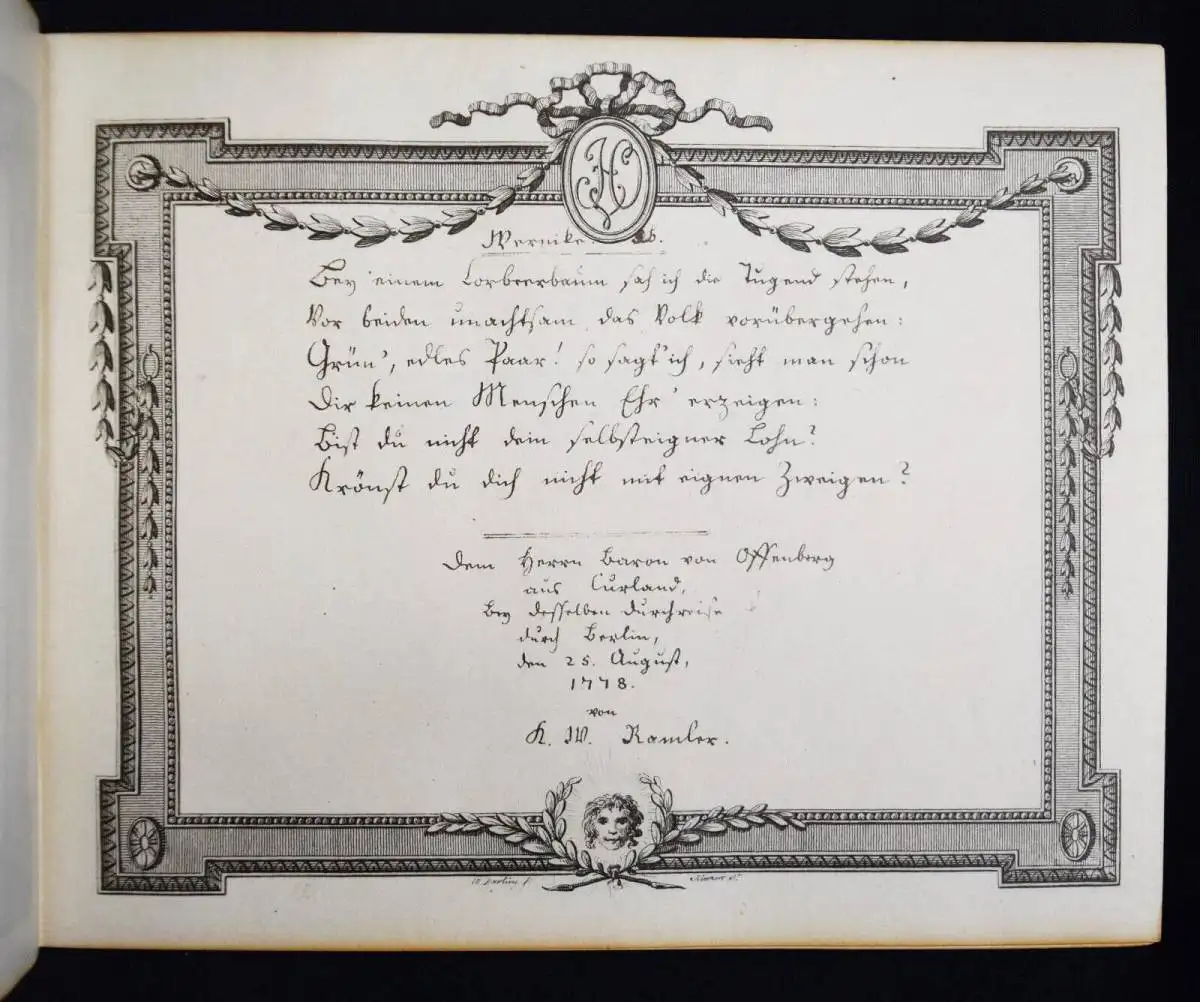 Wernike.
Bey einem Lorbeerbaum sah ich die Tugend stehen,
Vor beiden unachtsam das Volk vorübergehen:
Grün', edles Paar! so sagt' ich, sieht man schon
Dir keinen Menschen Ehr' erzeigen:
Bist du nicht dein selbsteigner Lohn?
Krönst du dich nicht mit eignen Zweigen?
Dem Herrn Baron von Offenberg
aus Curland,
bey desselben Durchreise
durch Berlin,
den 25. August,
1778.
von
K. W. Ramler.